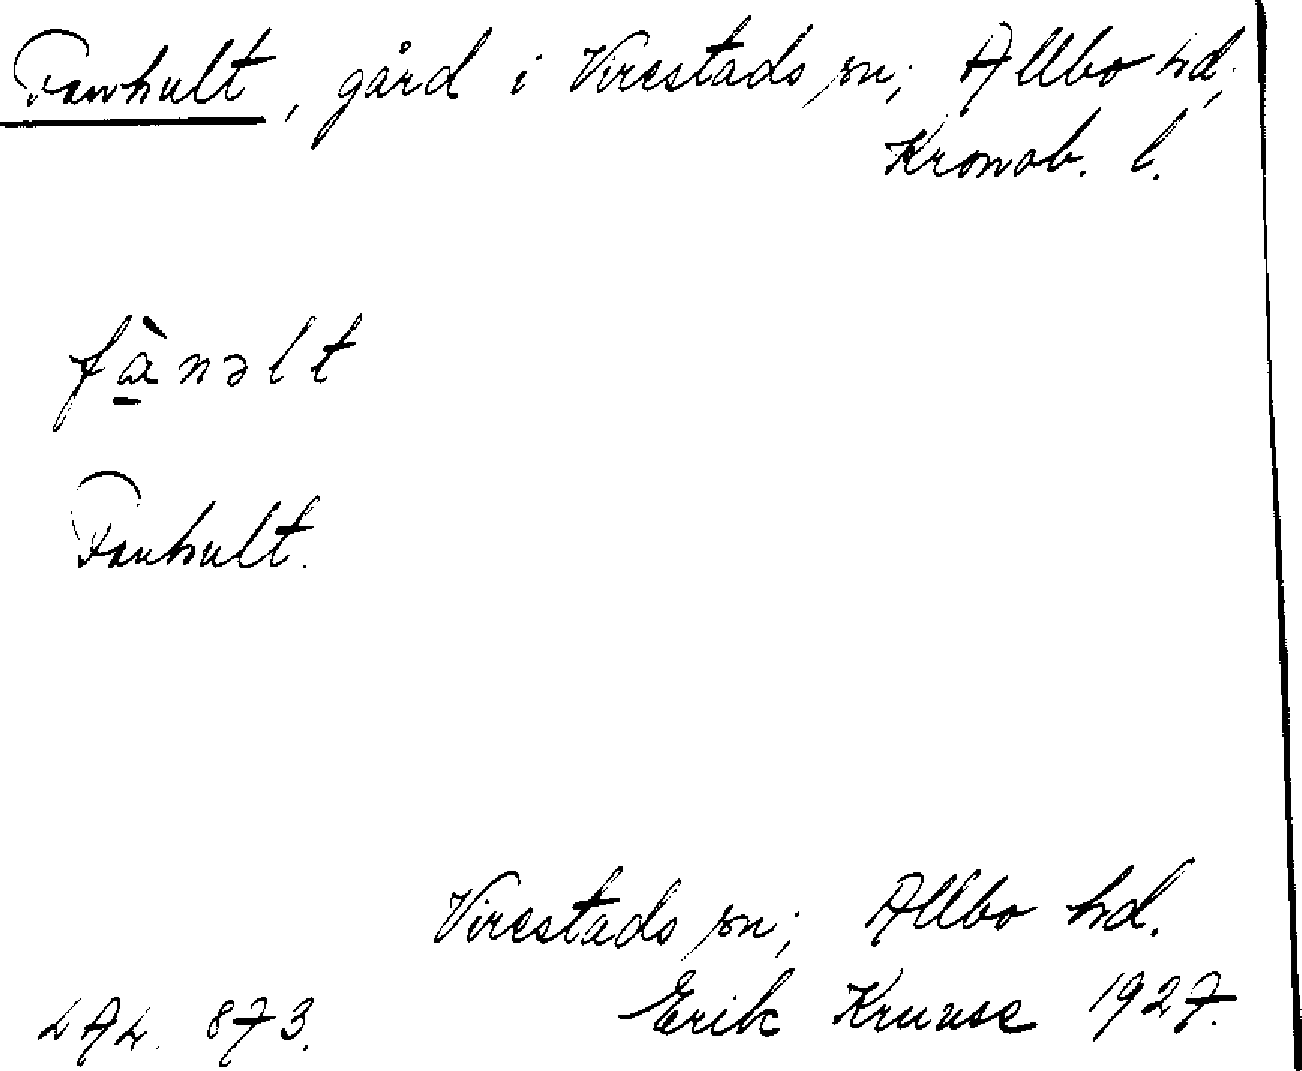 Fanhult, gård i Virestads sn; Allbo hd;
Kronob. l.
fànəlt
Fanhult.
Virestads sn; Allbo hd.
LAL. 873. Erik Kruuse 1927.